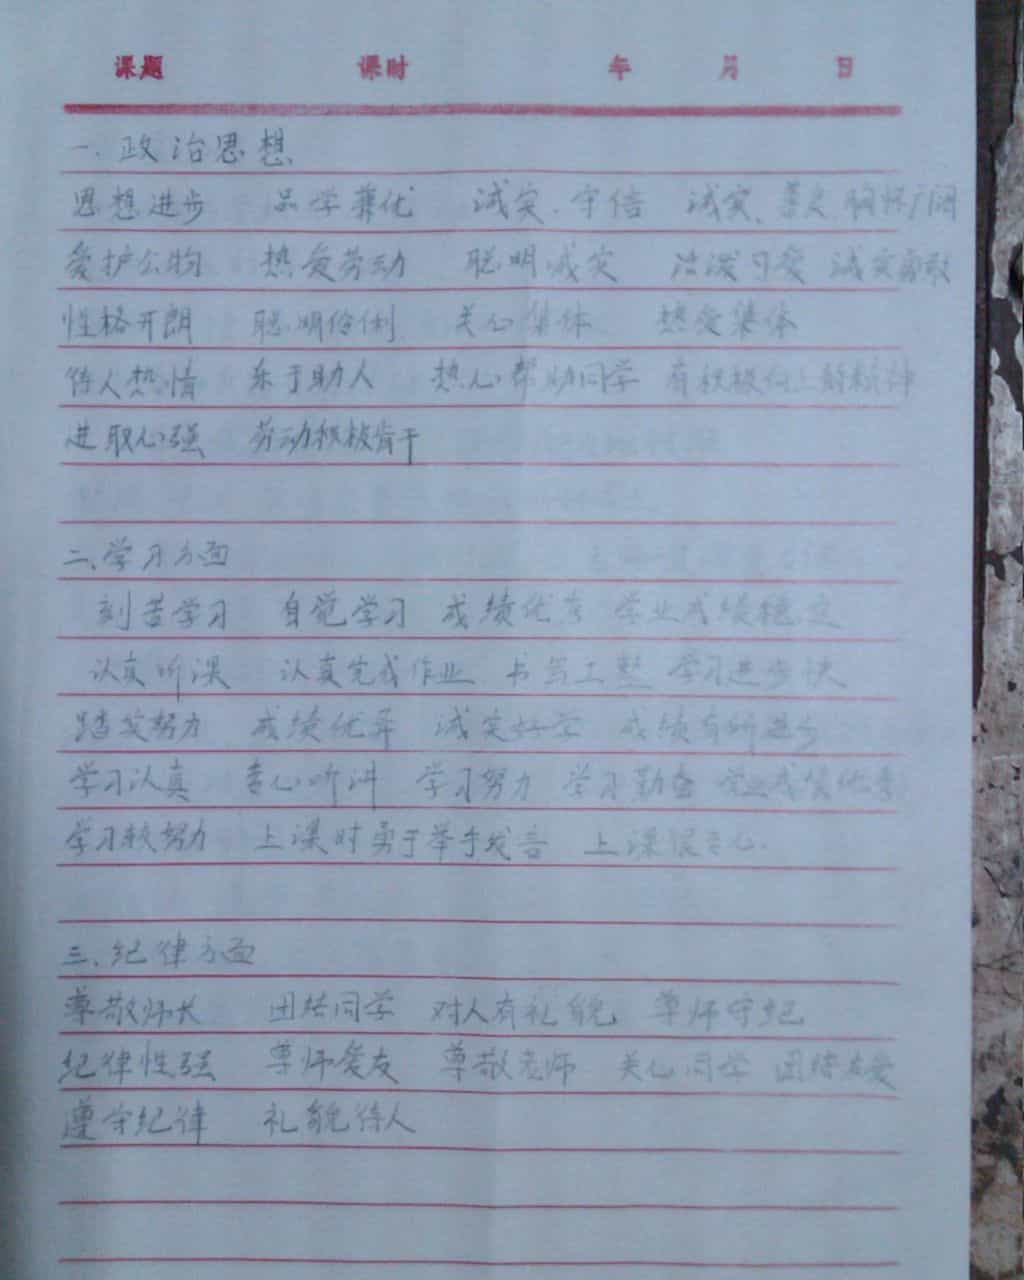 课题 课时 年 月 日
一.政治思想
思想进步 品学兼优 诚实.守信 诚实、善良 胸怀广阔
爱护公物 热爱劳动 聪明诚实 活泼可爱 诚实勇敢
性格开朗 聪明伶俐 关心集体 热爱集体
待人热情 乐于助人 热心帮助同学 有积极向上的精神
进取心强 劳动积极肯干
二、学习方面
刻苦学习 自觉学习 成绩优秀 学业成绩稳定
认真听课 认真完成作业 书写工整 学习进步快
踏实努力 成绩优异 诚实好学 成绩有所进步
学习认真 专心听讲 学习努力 学习勤奋 学业成绩优秀
学习较努力 上课时勇于举手发言 上课很专心.
三、纪律方面
尊敬师长 团结同学 对人有礼貌 尊师守纪
纪律性强 尊师爱友 尊敬老师 关心同学 团结友爱
遵守纪律 礼貌待人